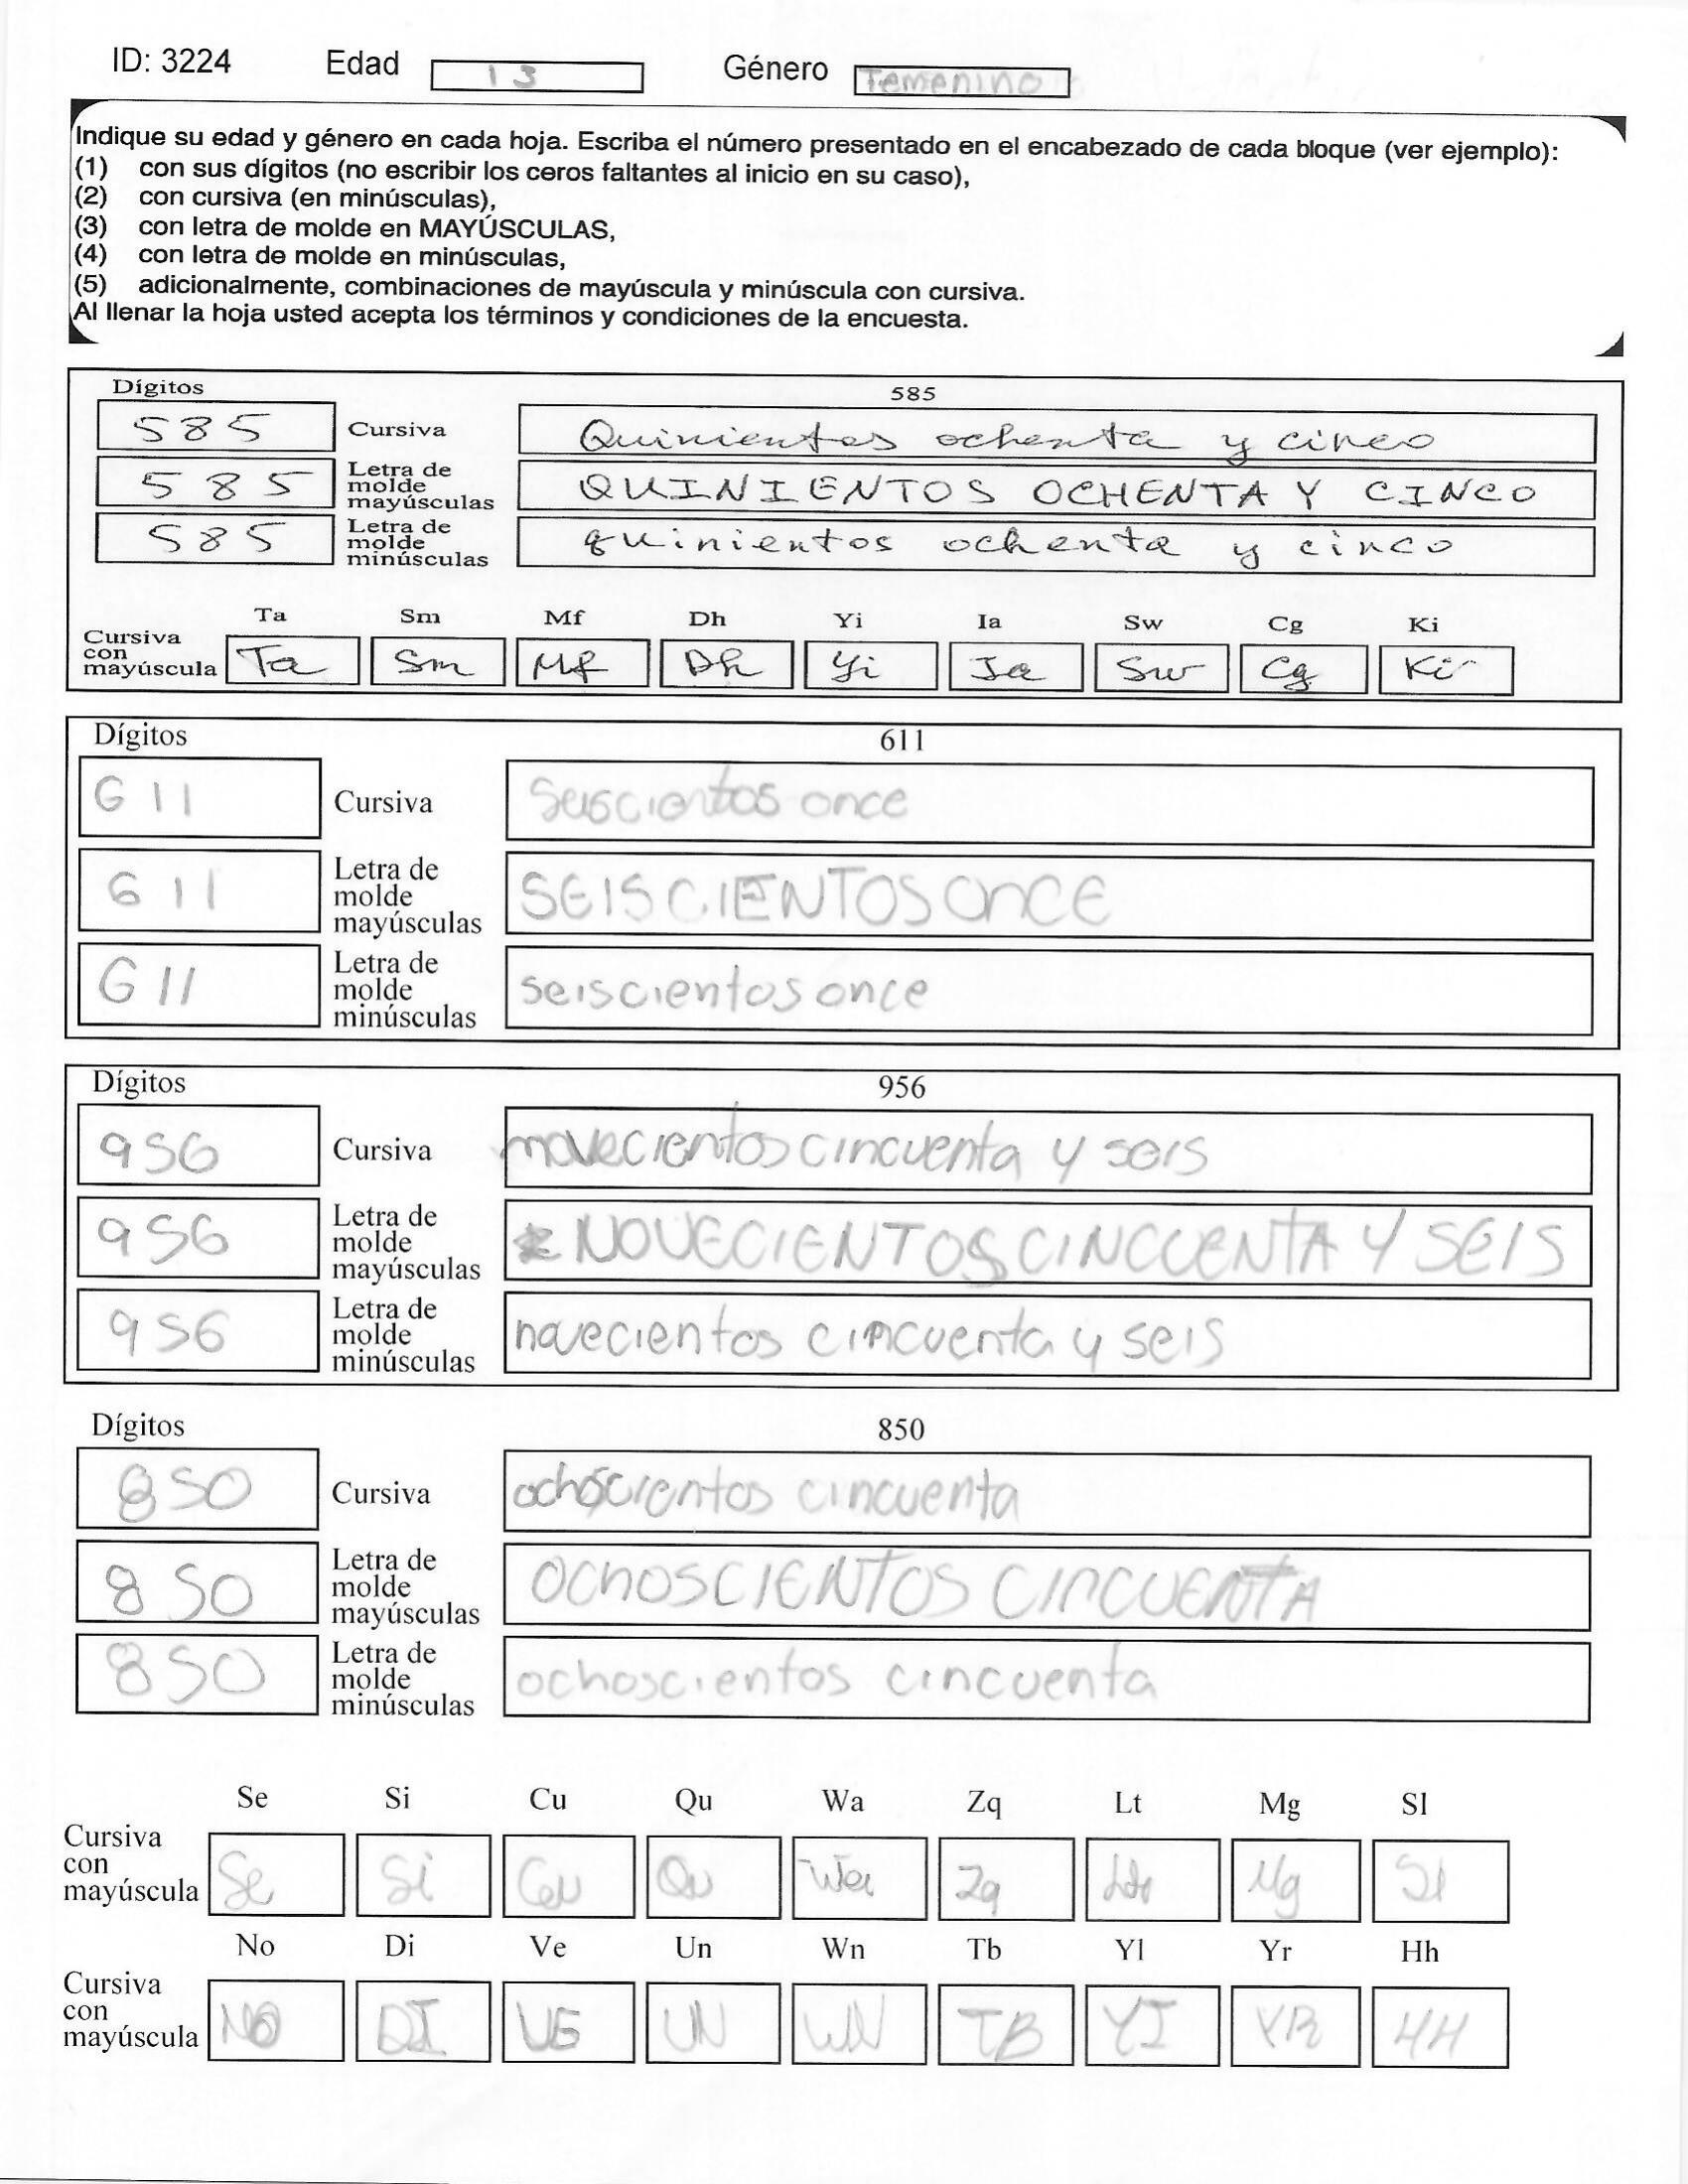 ID: 3224 Edad 13 Género Femenino
Indique su edad y género en cada hoja. Escriba el número presentado en el encabezado de cada bloque (ver ejemplo):
(1) con sus dígitos (no escribir los ceros faltantes al inicio en su caso),
(2) con cursiva (en minúsculas),
(3) con letra de molde en MAYÚSCULAS,
(4) con letra de molde en minúsculas,
(5) adicionalmente, combinaciones de mayúscula y minúscula con cursiva.
Al llenar la hoja usted acepta los términos y condiciones de la encuesta.
Dígitos 585
585 Cursiva Quinientos ochenta y cinco
585 Letra de molde mayúsculas QUINIENTOS OCHENTA Y CINCO
585 Letra de molde minúsculas quinientos ochenta y cinco
Ta Sm Mf Dh Yi Ia Sw Cg Ki
Cursiva con mayúscula Ta Sm Mf Dh Yi Ia Sw Cg Ki
Dígitos 611
611 Cursiva Seiscientos once
611 Letra de molde mayúsculas SEISCIENTOS OnCE
611 Letra de molde minúsculas seiscientos once
Dígitos 956
956 Cursiva novecientos cincuenta y seis
956 Letra de molde mayúsculas NOVECIENTOS CINCUENTA Y SEIS
956 Letra de molde minúsculas novecientos cincuenta y seis
Dígitos 850
850 Cursiva ochoscientos cincuenta
850 Letra de molde mayúsculas OChOSCIENTOS CInCUENTA
850 Letra de molde minúsculas ochoscientos cincuenta
Se Si Cu Qu Wa Zq Lt Mg Sl
Cursiva con mayúscula Se Si Cu Qu Wa Zq Lt Mg Sl
No Di Ve Un Wn Tb Yl Yr Hh
Cursiva con mayúscula NO DI VE UN WN TB YI YR HH